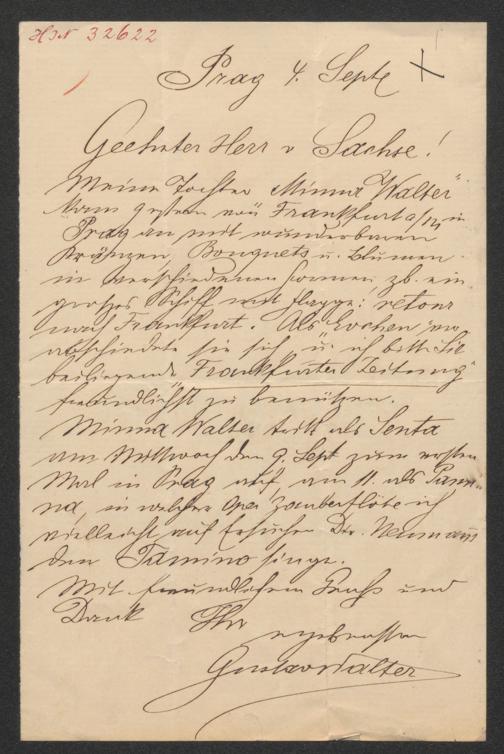 HIN 32622
Prag 4. Septe
Geehrter Herr v Sachse!
Meine Tochter "Minna Walter"
kam gestern von Frankfurt a/M in
Prag an mit wunderbaren
Kränzen, Bouquets u. Blumen
in verschiedenen Formen zb. ein
großes Schiff mit Flagge: retour
nach Frankfurt. Als
verabschiedete sie sich, u ich bitte Sie
beiliegende "Frankfurter Zeitung"
freundlichst zu benützen.
Minna Walter tritt als Senta
am Mittwoch den 9. Sept zum ersten
Mal in Prag auf, am 11. als Pami-
na, in welcher Oper Zauberflöte ich
vielleicht auf Ersuchen Dir. Neumanns
den Tamino singe.
Mit freundlichem Gruß und
Dank Ihr
ergebenster
Gustav Walter